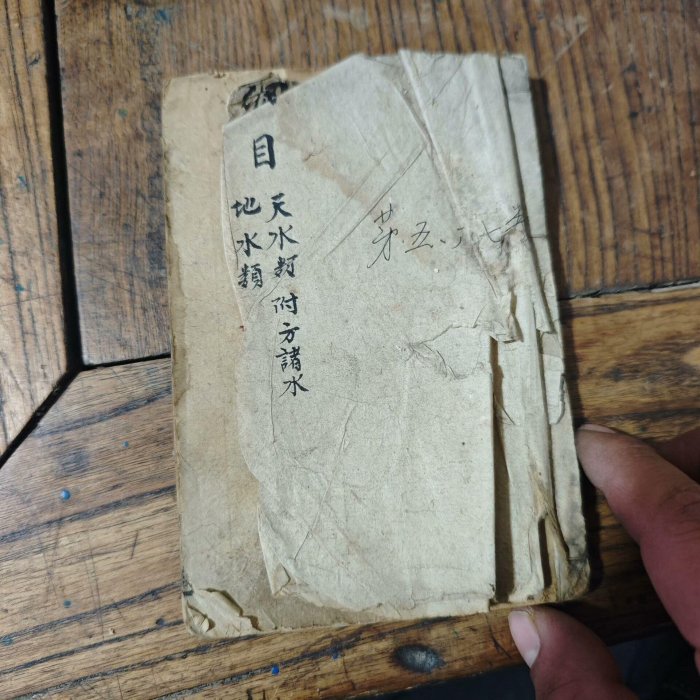 目
天水類 附方諸水
地水類
第五、六七